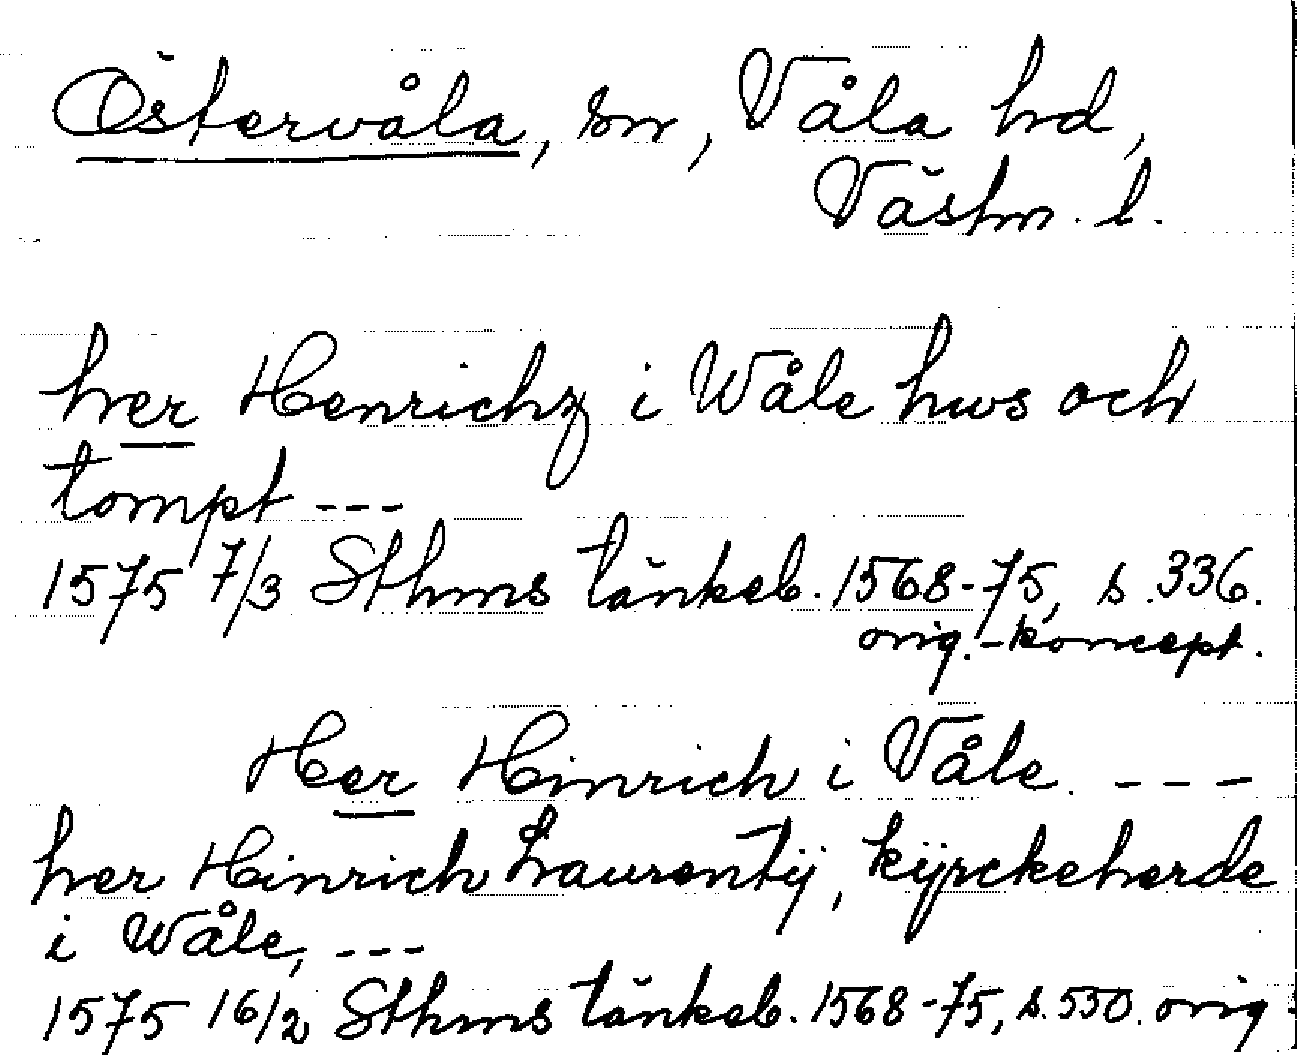 Östervåla, sn, Våla hd,
Västm. l.
her Henrichz i Wåle hws och
tompt ---
1575 7/3 Sthms tänkeb. 1568-75, s. 336.
orig.-koncept.
Her Hinrich i Våle. ---
her Hinrich Laurentij, kÿrckeherde
i Wåle, ---
1575 16/2 Sthms tänkeb. 1568-75, s. 550. orig.